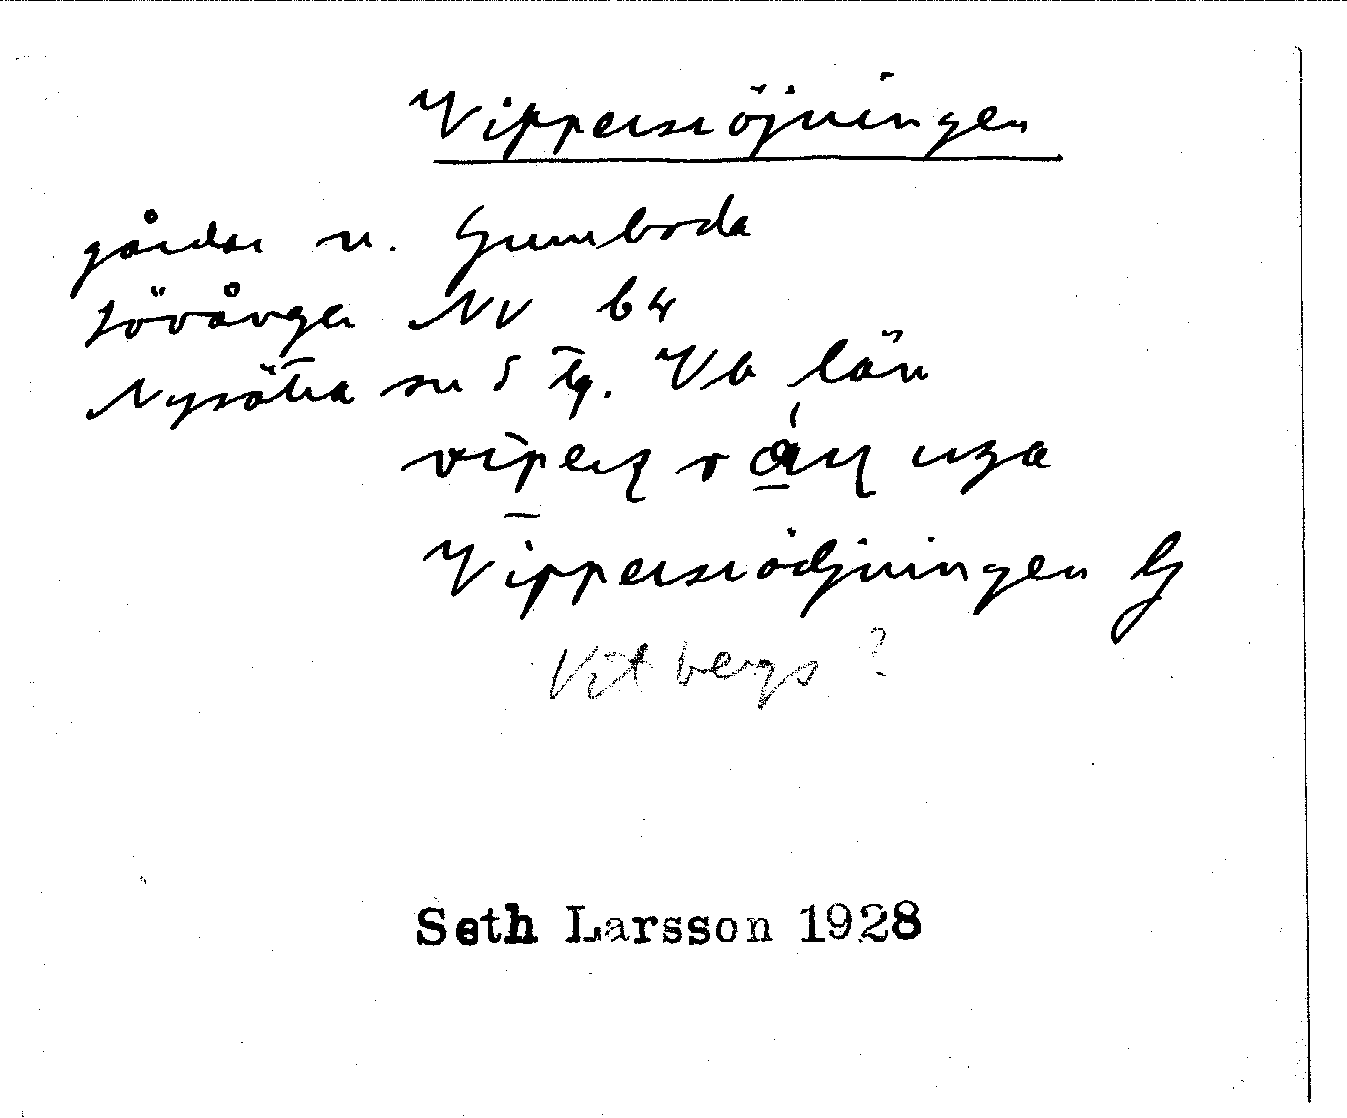 Vippersröjningen
gårdar n. Gumboda
Lövånger NV b4
Nysätra sn S tg. Vb län
Vippersrödjningen G
Vitbergs?
Seth Larsson 1928